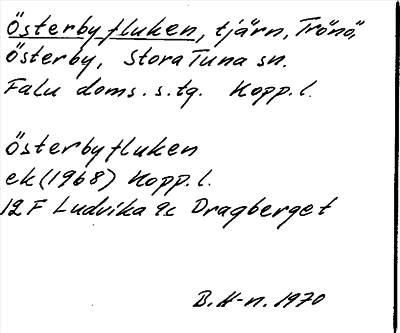 Österbyfluken, tjärn, Trönö,
Österby, Stora Tuna sn.
Falu doms. s. tg. Kopp. l.
Österbyfluken
ek (1968) Kopp. l.
12 F Ludvika 9c Dragberget
B. H-n. 1970